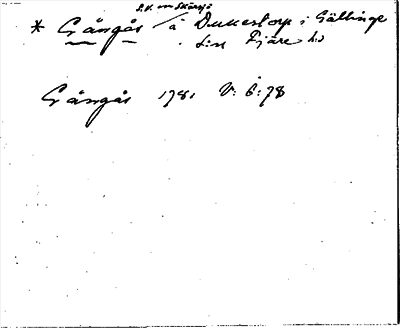 S.V. om Skärsjö
* Gångås å Dukestorp i Gällinge
sn Fjäre hd
Gångås 1781 V: 6: 78